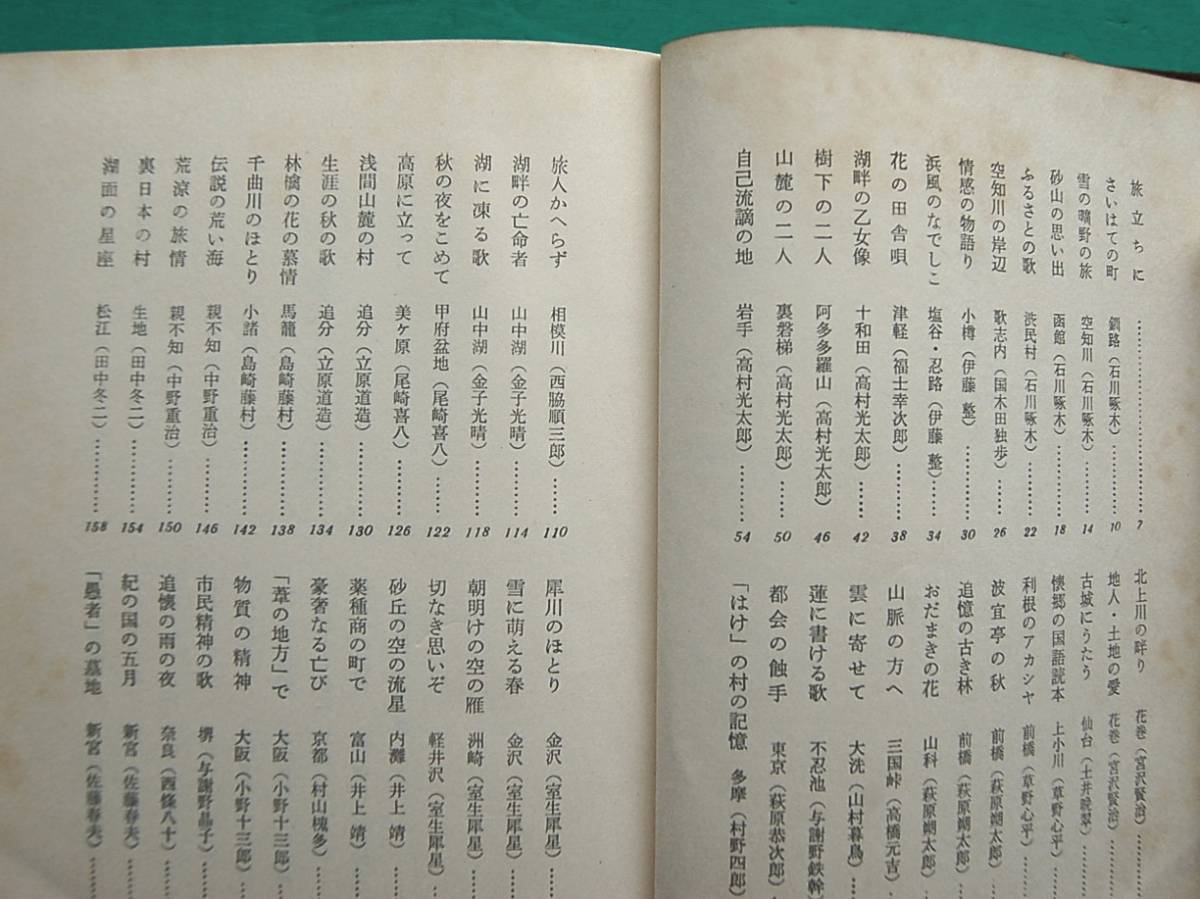 旅立ちに……………………7
さいはての町 釧路（石川啄木）………10
雪の曠野の旅 空知川（石川啄木）………14
砂山の思い出 函館（石川啄木）………18
ふるさとの歌 渋民村（石川啄木）………22
空知川の岸辺 歌志内（国木田独歩）……26
情感の物語り 小樽（伊藤 整）………30
浜風のなでしこ 塩谷・忍路（伊藤 整）……34
花の田舎唄 津軽（福士幸次郎）………38
湖畔の乙女像 十和田（高村光太郎）……42
樹下の二人 阿多多羅山（高村光太郎）46
山麓の二人 裏磐梯（高村光太郎）……50
自己流謫の地 岩手（高村光太郎）………54
北上川の畔り 花巻（宮沢賢治）………
地人・土地の愛 花巻（宮沢賢治）……
古城にうたう 仙台（土井晩翠）……
懐郷の国語読本 上小川（草野心平）……
利根のアカシヤ 前橋（草野心平）……
波宜亭の秋 前橋（萩原朔太郎）……
追憶の古き林 前橋（萩原朔太郎）……
おだまきの花 山科（萩原朔太郎）……
山脈の方へ 三国峠（高橋元吉）……
雲に寄せて 大洗（山村暮鳥）……
蓮に書ける歌 不忍池（与謝野鉄幹）
都会の蝕手 東京（萩原恭次郎）……
「はけ」の村の記憶 多摩（村野四郎）
旅人かへらず 相模川（西脇順三郎）……110
湖畔の亡命者 山中湖（金子光晴）………114
湖に凍る歌 山中湖（金子光晴）………118
秋の夜をこめて 甲府盆地（尾崎喜八）……122
高原に立って 美ヶ原（尾崎喜八）………126
浅間山麓の村 追分（立原道造）…………130
生涯の秋の歌 追分（立原道造）…………134
林檎の花の慕情 馬籠（島崎藤村）…………138
千曲川のほとり 小諸（島崎藤村）…………142
伝説の荒い海 親不知（中野重治）………146
荒涼の旅情 親不知（中野重治）………150
裏日本の村 生地（田中冬二）…………154
湖面の星座 松江（田中冬二）…………158
犀川のほとり 金沢（室生犀星）……
雪に萌える春 金沢（室生犀星）……
朝明けの空の雁 洲崎（室生犀星）……
切なき思いぞ 軽井沢（室生犀星）‥
砂丘の空の流星 内灘（井上 靖）……
薬種商の町で 富山（井上 靖）……
豪奢なる亡び 京都（村山槐多）……
「葦の地方」で 大阪（小野十三郎）……
物質の精神 大阪（小野十三郎）……
市民精神の歌 堺（与謝野晶子）……
追懐の雨の夜 奈良（西條八十）……
紀の国の五月 新宮（佐藤春夫）……
「愚者」の墓地 新宮（佐藤春夫）……